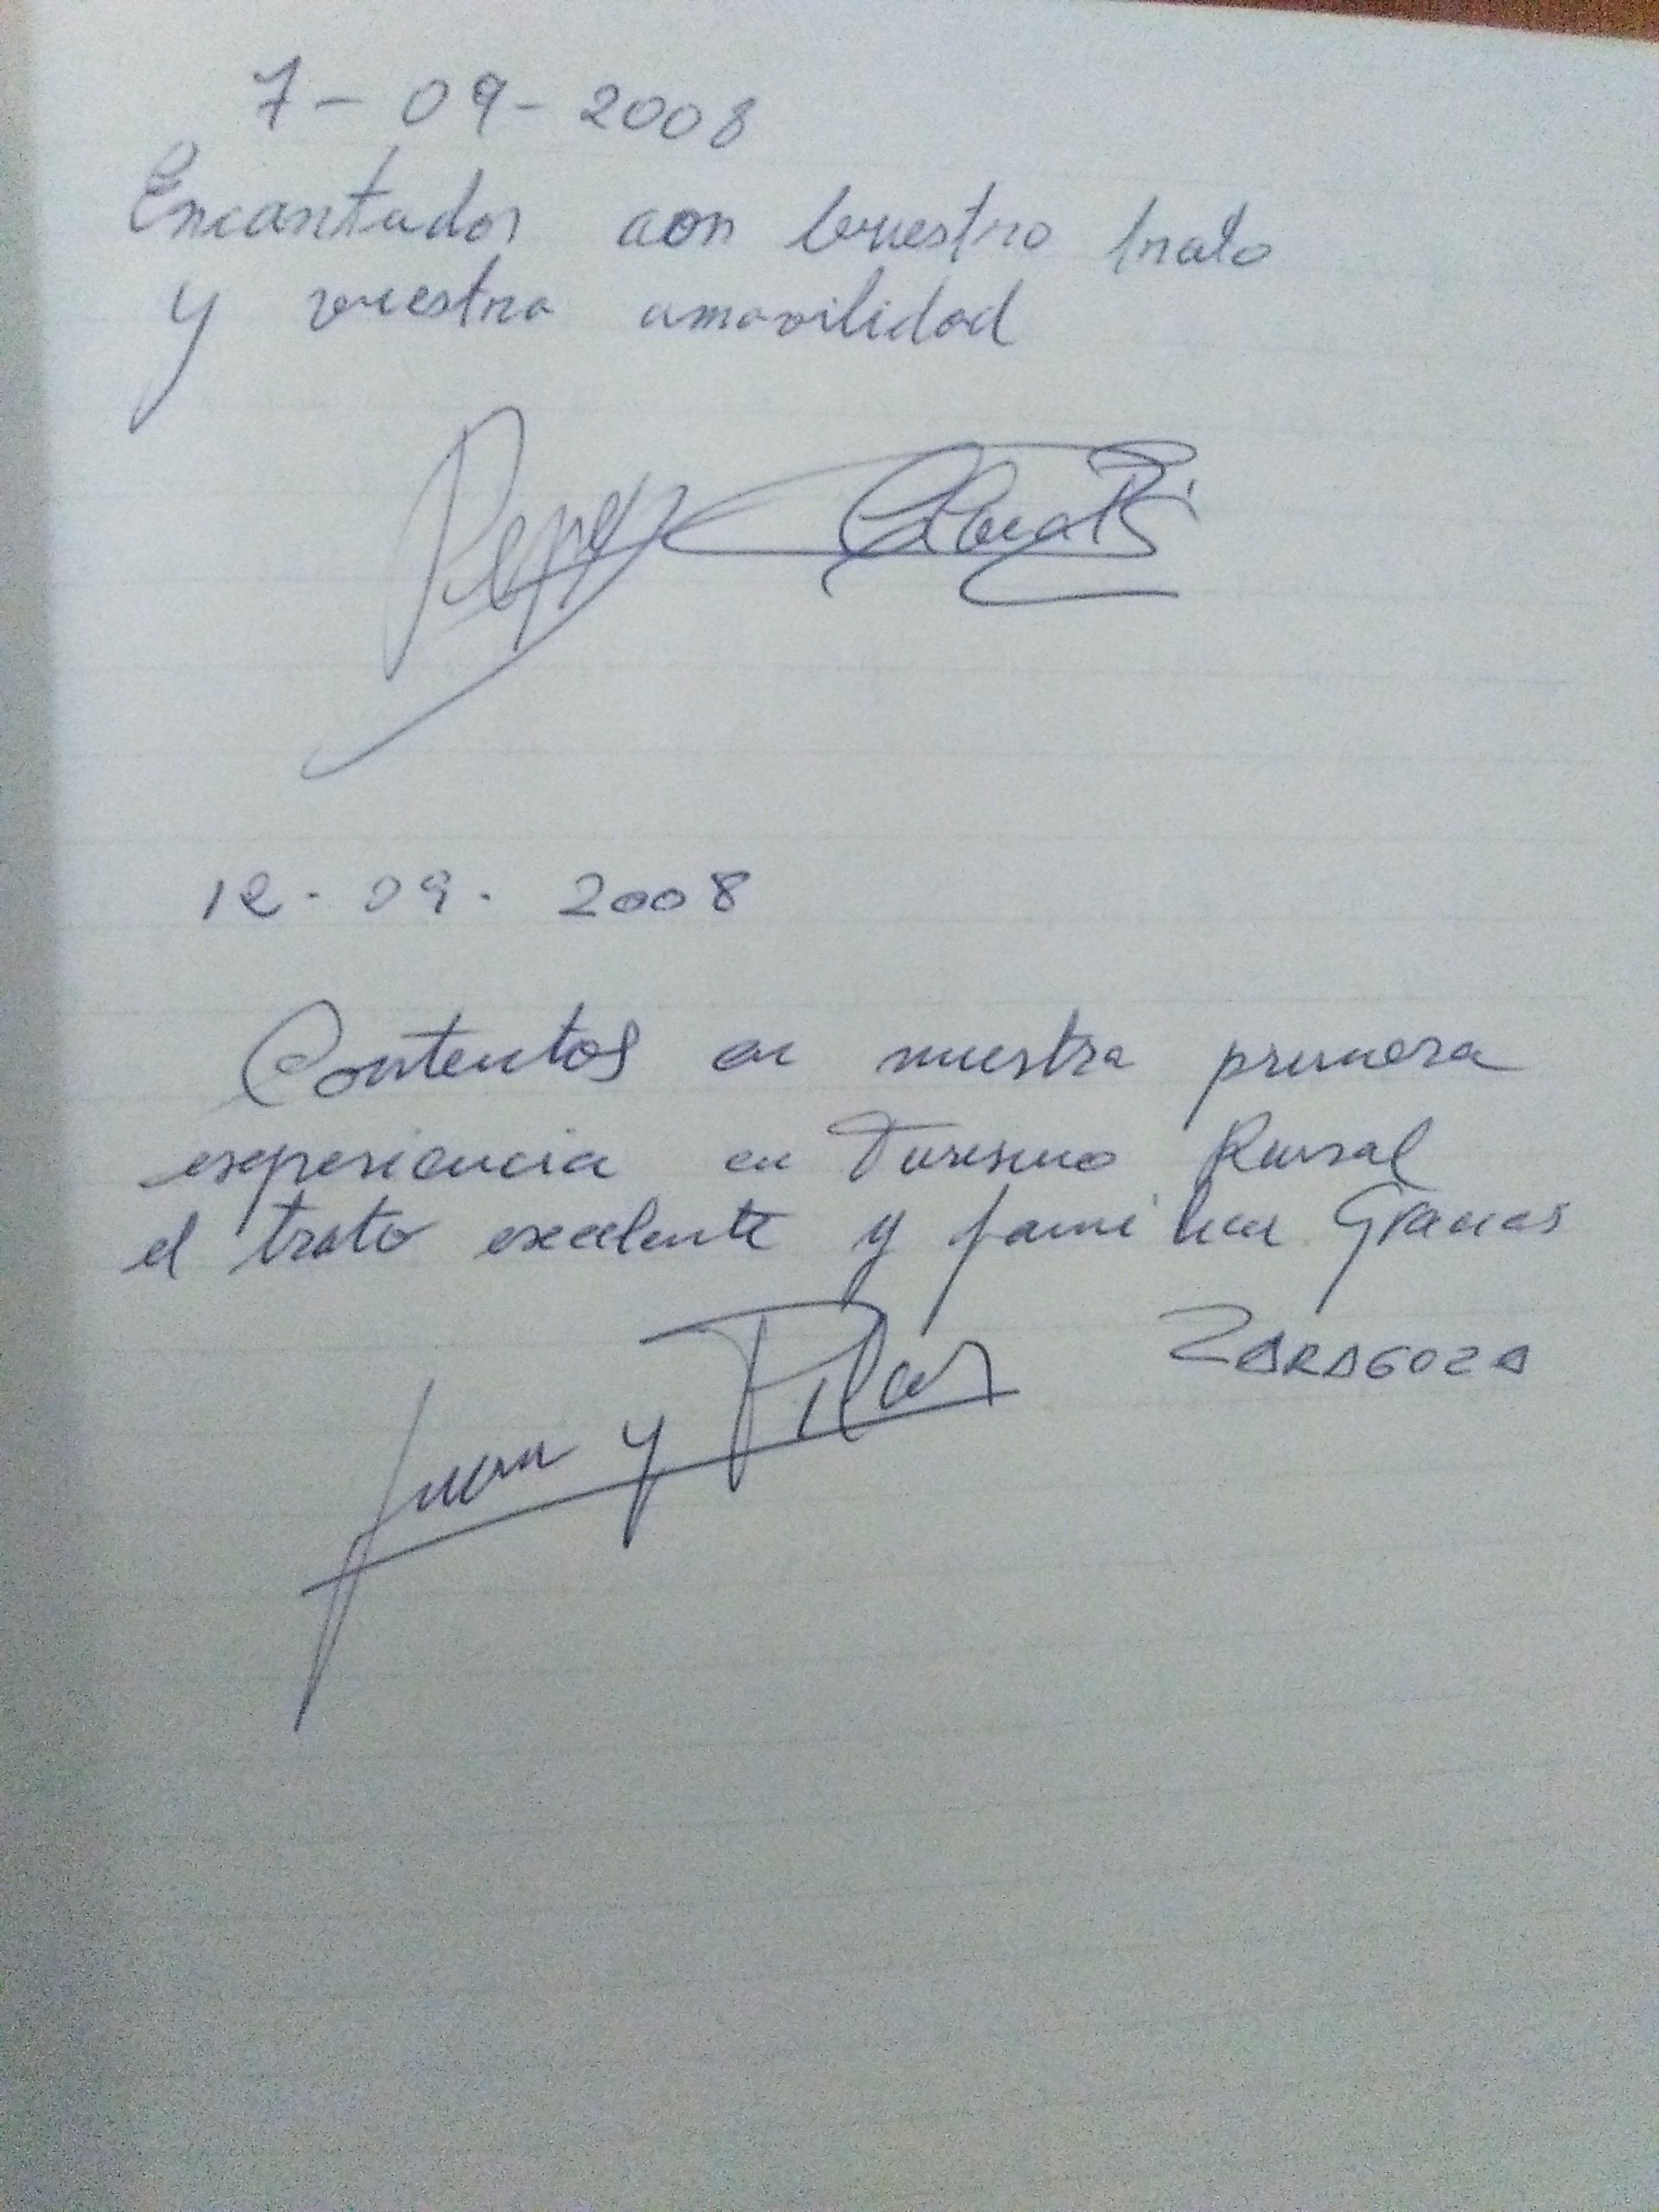 7-09-2008
Encantados con buestro trato
y vuestra amavilidad
12.09.2008
Contentos en nuestra primera
experiencia en Turismo Rural
el trato excelente y familiar Gracias
ZARAGOZA
Juan y Pilar